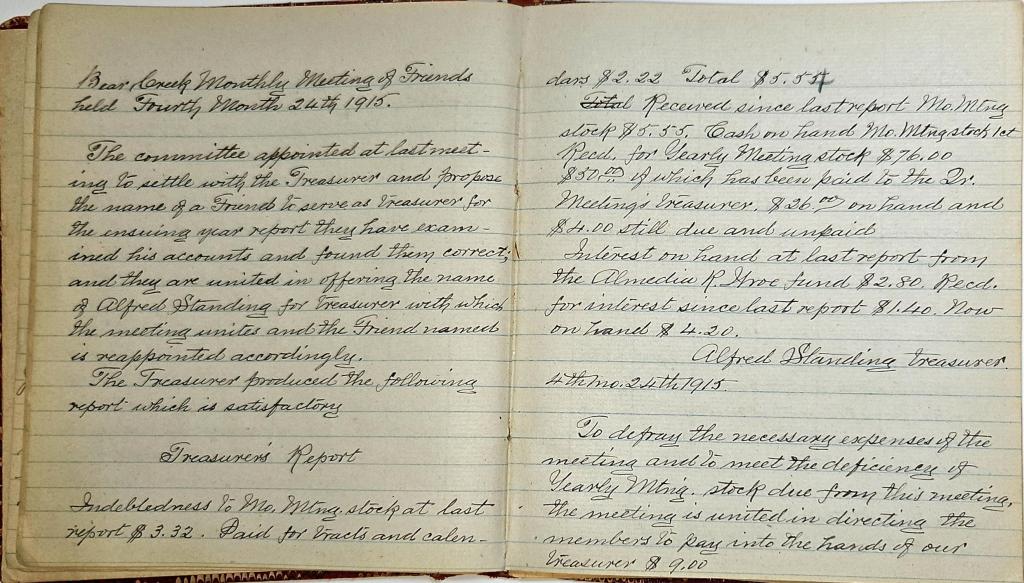 Bear Creek Monthly Meeting of Friends
held Fourth Month 24th 1915.
The committee appointed at last meet-
ing to settle with the Treasurer and propose
the name of a Friend to serve as treasurer for
the ensuing year report they have exam-
ined his accounts and found them correct;
and they are united in offering the name
of Alfred Standing for treasurer with which
the meeting unites and the Friend named
is reappointed accordingly.
The Treasurer produced the following
report which is satisfactory
Treasurer's Report
Indebtedness to Mo. Mtng. stock at last
report $3.32. Paid for tracts and calen-
dars $2.22 Total $5.54
Total Received since last report Mo. Mtng
stock $5.55. Cash on hand Mo. Mtng stock 1ct
Recd. for Yearly Meeting stock $76.00
$50.00 of which has been paid to the Qr.
Meeting's treasurer. $26.00 on hand and
$4.00 still due and unpaid
Interest on hand at last report from
the Almedia R. fund $2.80. Recd.
for interest since last report $1.40. Now
on hand $4.20.
Alfred Standing treasurer.
4th mo. 24th 1915
To defray the necessary expenses of the
meeting and to meet the deficiency of
Yearly Mtng. stock due from this meeting,
the meeting is united in directing the
members to pay into the hands of our
treasurer $9.00